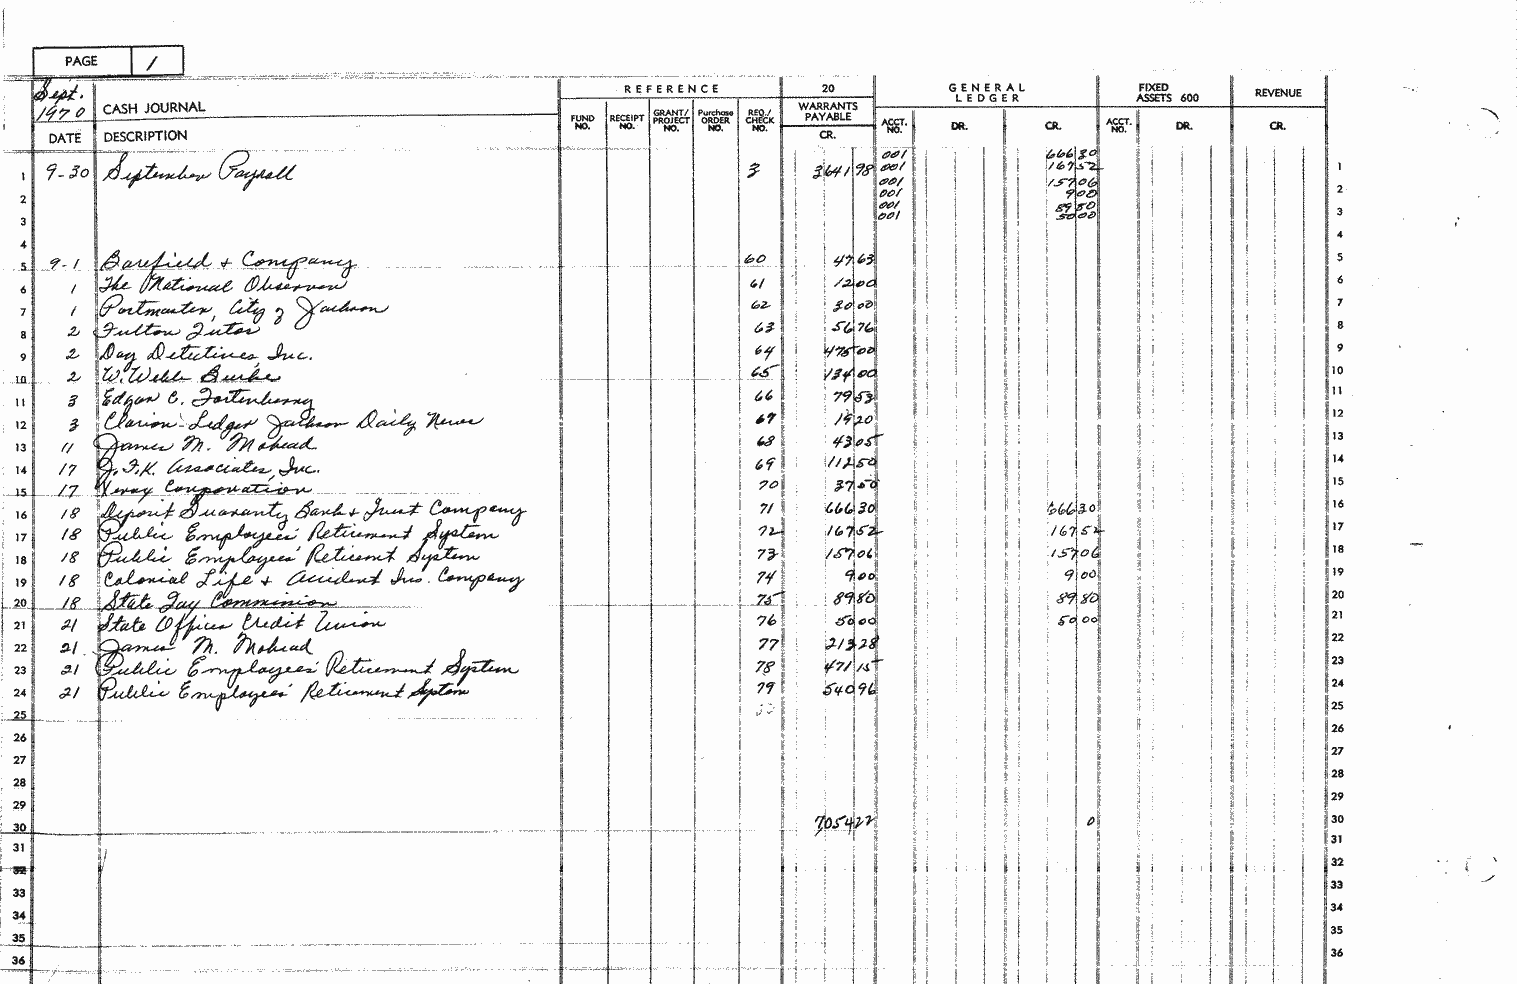 PAGE 1
Sept. 1970 CASH JOURNAL REFERENCE 20 GENERAL LEDGER FIXED ASSETS 600 REVENUE
FUND NO. RECEIPT NO. GRANT/PROJECT NO. Purchase ORDER NO. REQ./CHECK NO. WARRANTS PAYABLE ACCT. NO. DR. CR. ACCT. NO. DR. CR.
DATE DESCRIPTION CR.
001 666 30
1 9-30 September Payroll 3 3641 98 001 167 52 1
001 157 06
2 001 9 00 2
001 89 80
3 001 50 00 3
4 4
5 9-1 Barefield + Company 60 47 63 5
6 1 The National Observer 61 12 00 6
7 1 Postmaster, City of Jackson 62 30 00 7
8 2 Fulton Tutor 63 56 76 8
9 2 Day Detectives, Inc. 64 475 00 9
10 2 W. Webb Burke 65 134 00 10
11 3 Edgar C. Fortenberry 66 79 53 11
12 3 Clarion-Ledger Jackson Daily News 67 19 20 12
13 11 James M. Mohead 68 43 05 13
14 17 J.F.K. Associates, Inc. 69 112 50 14
15 17 Xerox Corporation 70 37 50 15
16 18 Deposit Guaranty Bank & Trust Company 71 666 30 666 30 16
17 18 Public Employees' Retirement System 72 167 52 167 52 17
18 18 Public Employees' Retirement System 73 157 06 157 06 18
19 18 Colonial Life + Accident Ins. Company 74 9 00 9 00 19
20 18 State Tax Commission 75 89 80 89 80 20
21 21 State Offices Credit Union 76 50 00 50 00 21
22 21 James M. Mohead 77 213 28 22
23 21 Public Employees' Retirement System 78 471 15 23
24 21 Public Employees' Retirement System 79 540 96 24
25 25
26 26
27 27
28 28
29 29
30 7054 22 0 30
31 31
32 32
33 33
34 34
35 35
36 36